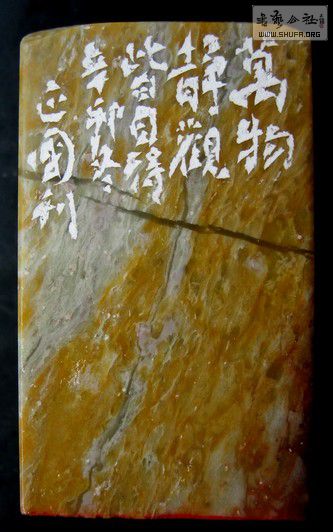 萬物
靜觀
皆自得
辛卯冬
國
書藝公社
WWW.SHUFA.ORG